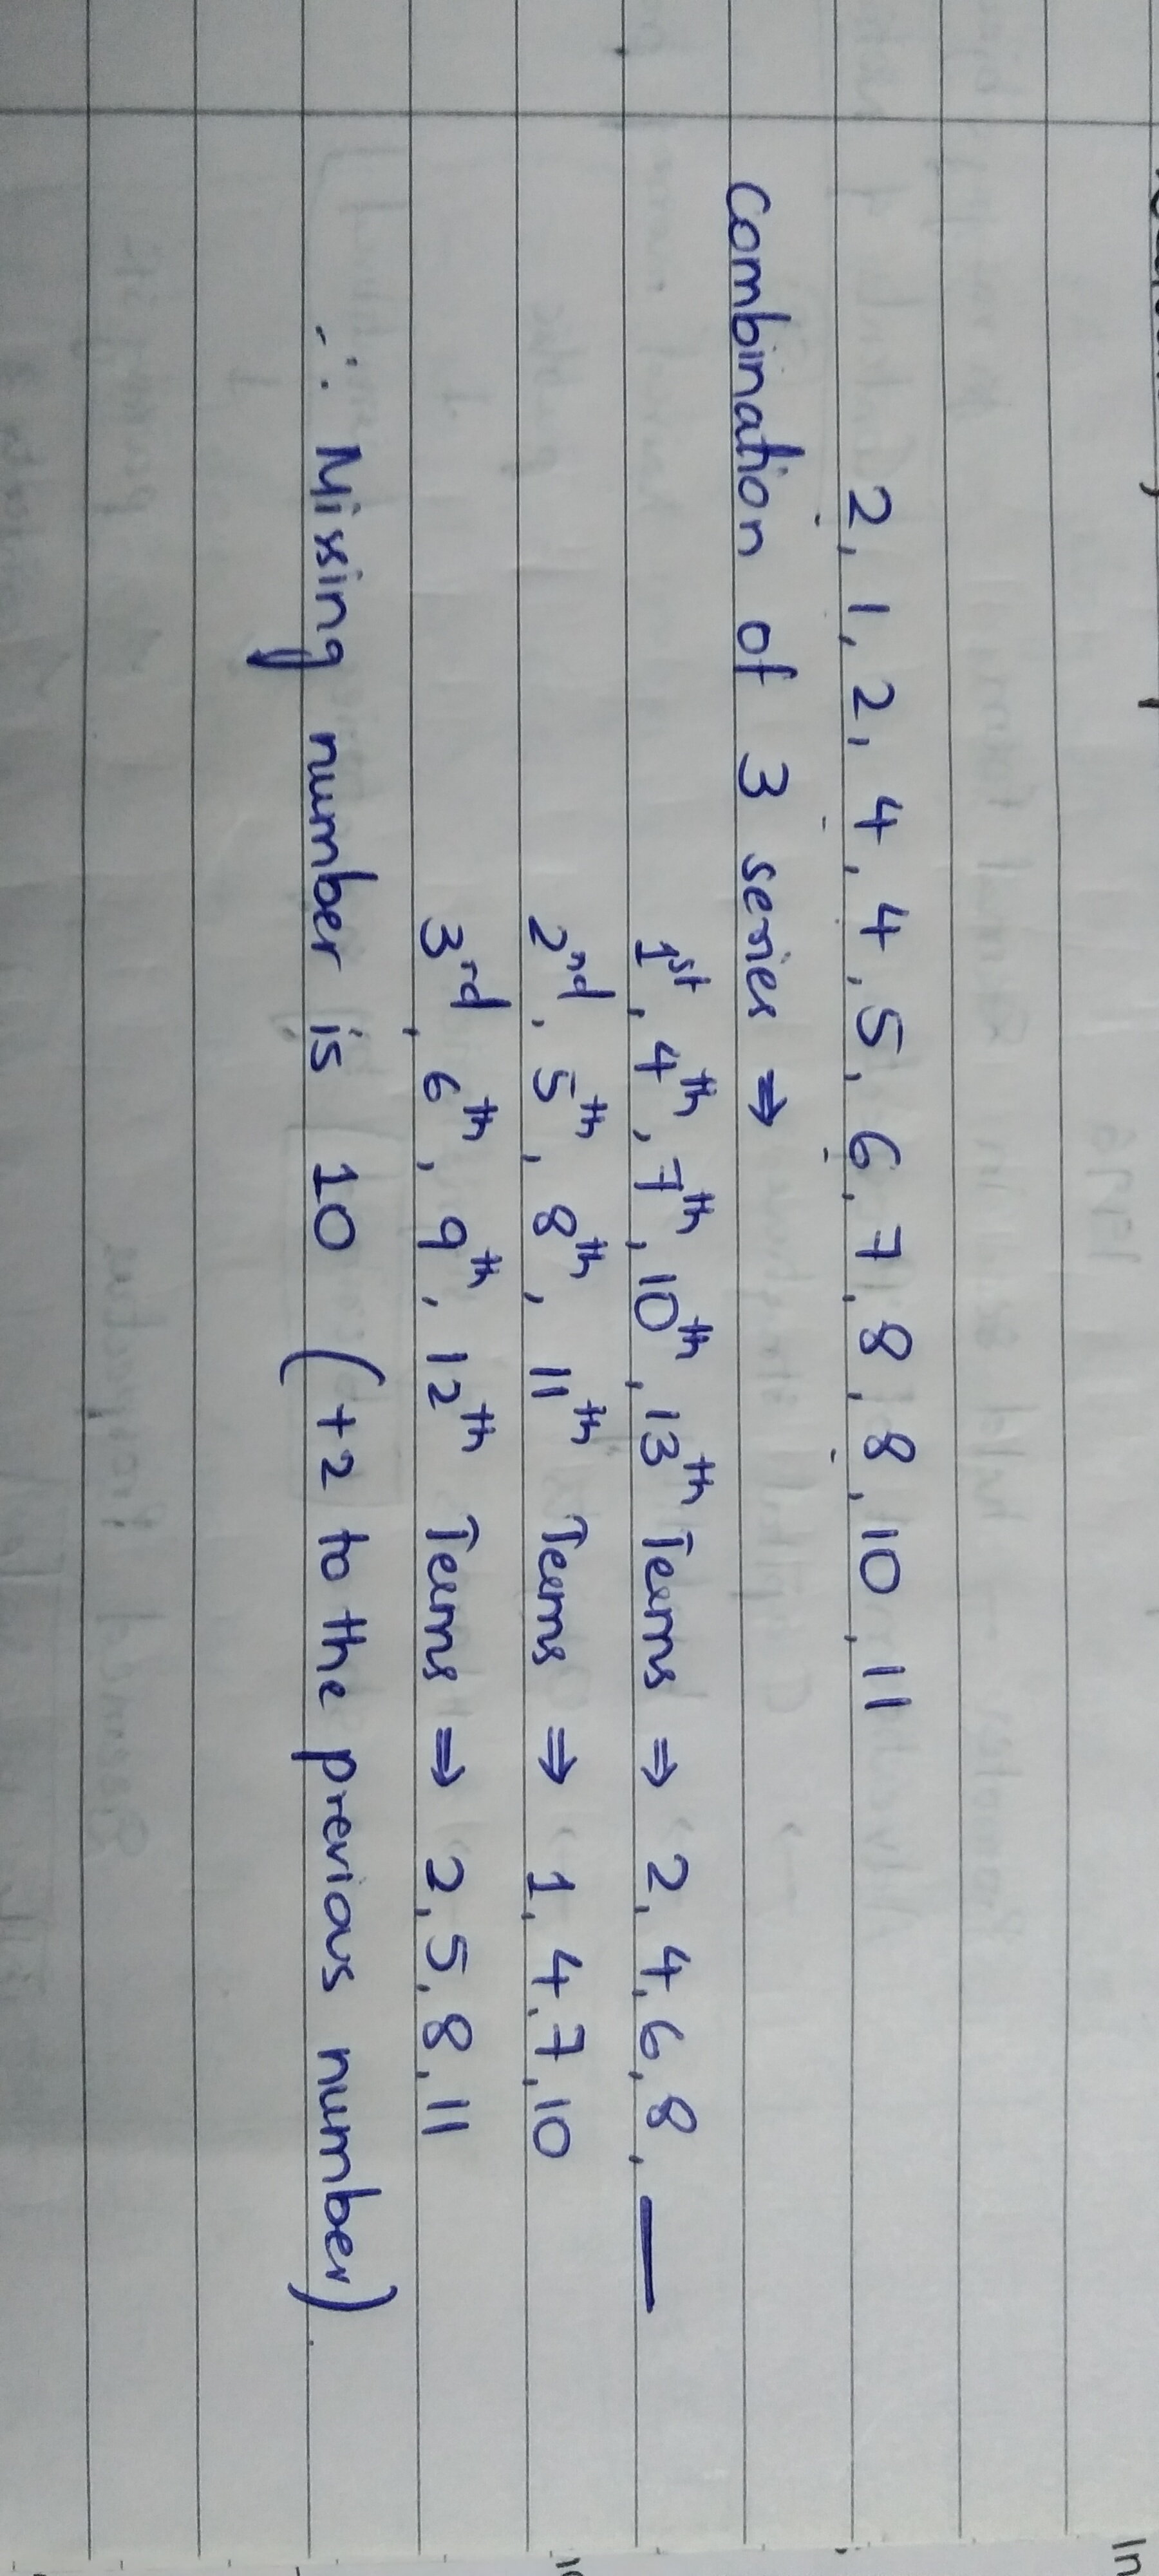 2, 1, 2, 4, 4, 5, 6, 7, 8, 8, 10, 11
Combination of 3 series ⇒
1st, 4th, 7th, 10th, 13th Terms ⇒ 2, 4, 6, 8, __
2nd, 5th, 8th, 11th Terms ⇒ 1, 4, 7, 10
3rd, 6th, 9th, 12th Terms ⇒ 2, 5, 8, 11
∴ Missing number is 10 (+2 to the previous number).